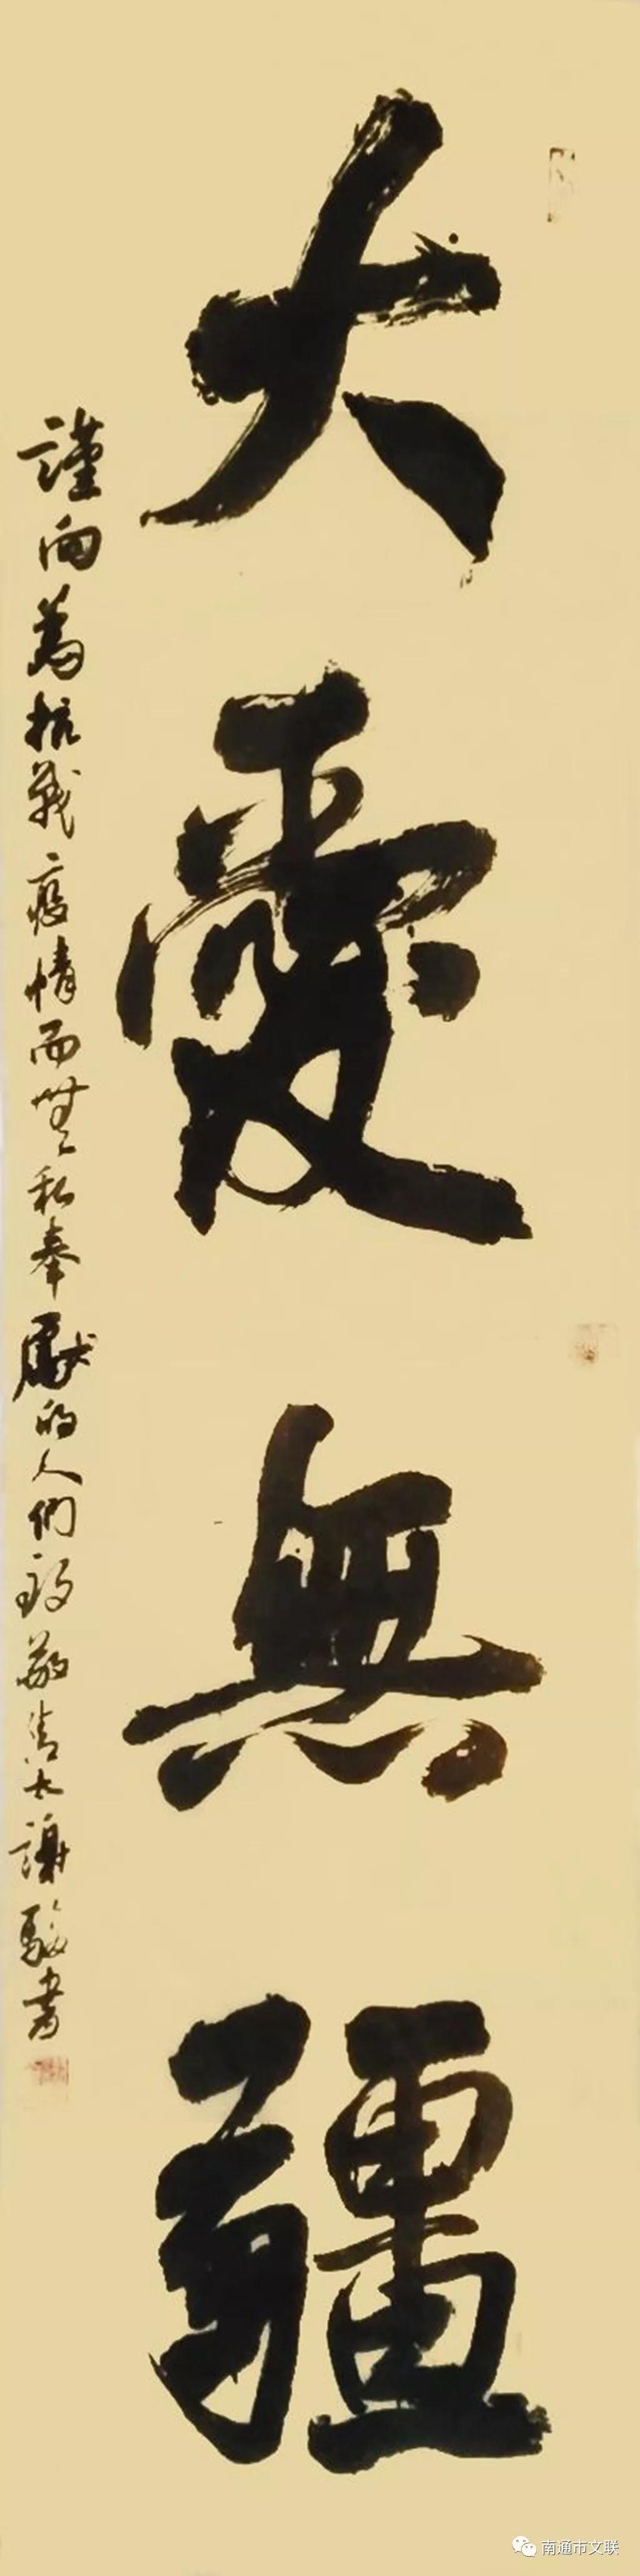 大愛無疆
謹向為抗戰疫情而無私奉獻的人們致敬 謝駿書
南通市文联